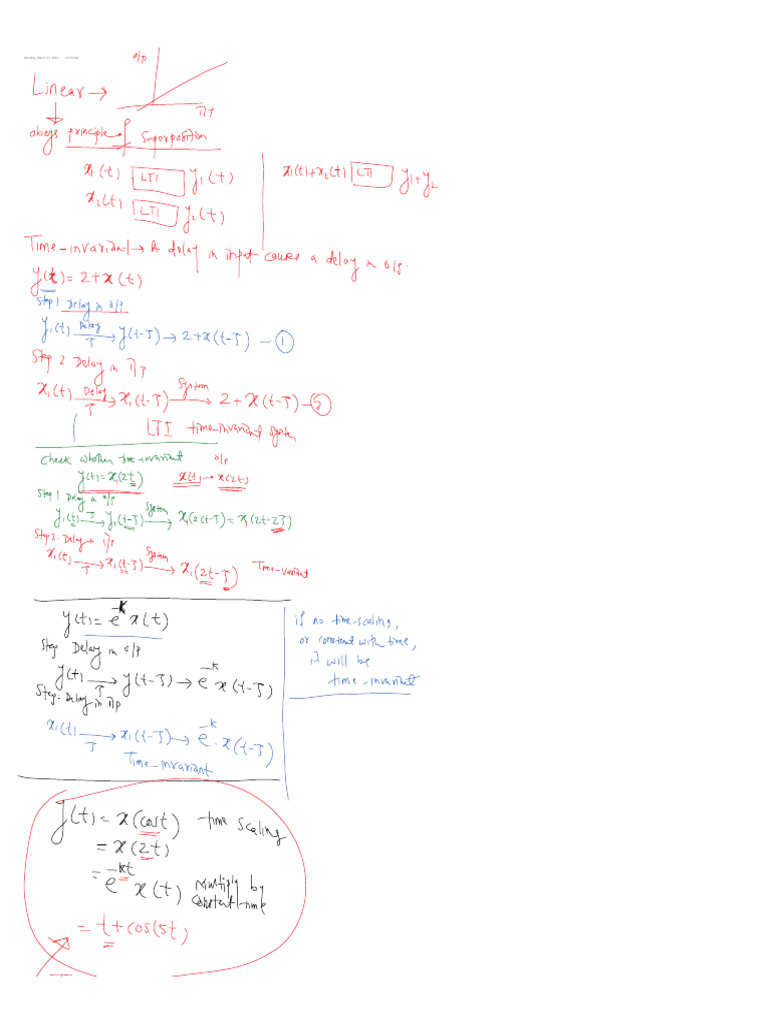 o/p
Linear →
I/P
obeys principle of superposition
x₁(t) [LTI] y₁(t)
x₂(t) [LTI] y₂(t)
x₁(t)+x₂(t) [LTI] y₁+y₂
Time-invariant → A delay in input causes a delay in o/p.
y(t) = 2+x(t)
Step 1 Delay in o/p
y₁(t) Delay τ → y(t-τ) → 2+x(t-τ) - ①
Step 2 Delay in I/p
x₁(t) Delay τ → x₁(t-τ) System → 2+x(t-τ) - ②
LTI time-invariant system
Check whether time-invariant
o/p
y(t)=x₁(2t)
x(t) → x(2t)
Step 1 Delay in o/p
y₁(t) τ → y₁(t-τ) System → x₁(2(t-τ)) = x₁(2t-2τ)
Step 2. Delay in i/p
x₁(t) τ → x₁(t-τ) System → x₁(2t-τ)
Time-variant
y(t) = e^-k x(t)
Step Delay in o/p
y(t) τ → y(t-τ) → e^-k x(t-τ)
Step-Delay in I/p
x₁(t) τ → x₁(t-τ) → e^-k . x(t-τ)
Time-invariant
if no time-scaling,
or constant with time,
it will be
time-invariant
y(t) = x(cost) time scaling
= x(2t)
= e^-kt x(t) multiply by
constant-time
= t+cos(5t)